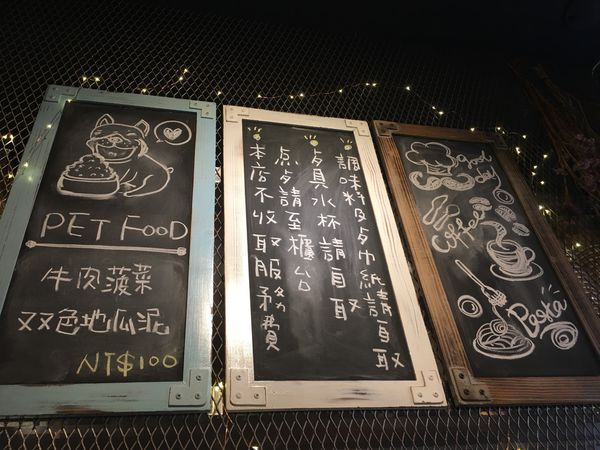 PET FOOD
牛肉菠菜
双色地瓜泥
NT$100
調味料及歺巾紙請自取
歺具水杯請自取
点歺請至櫃台
本店不收取服務費
Good
Coffee
Pasta